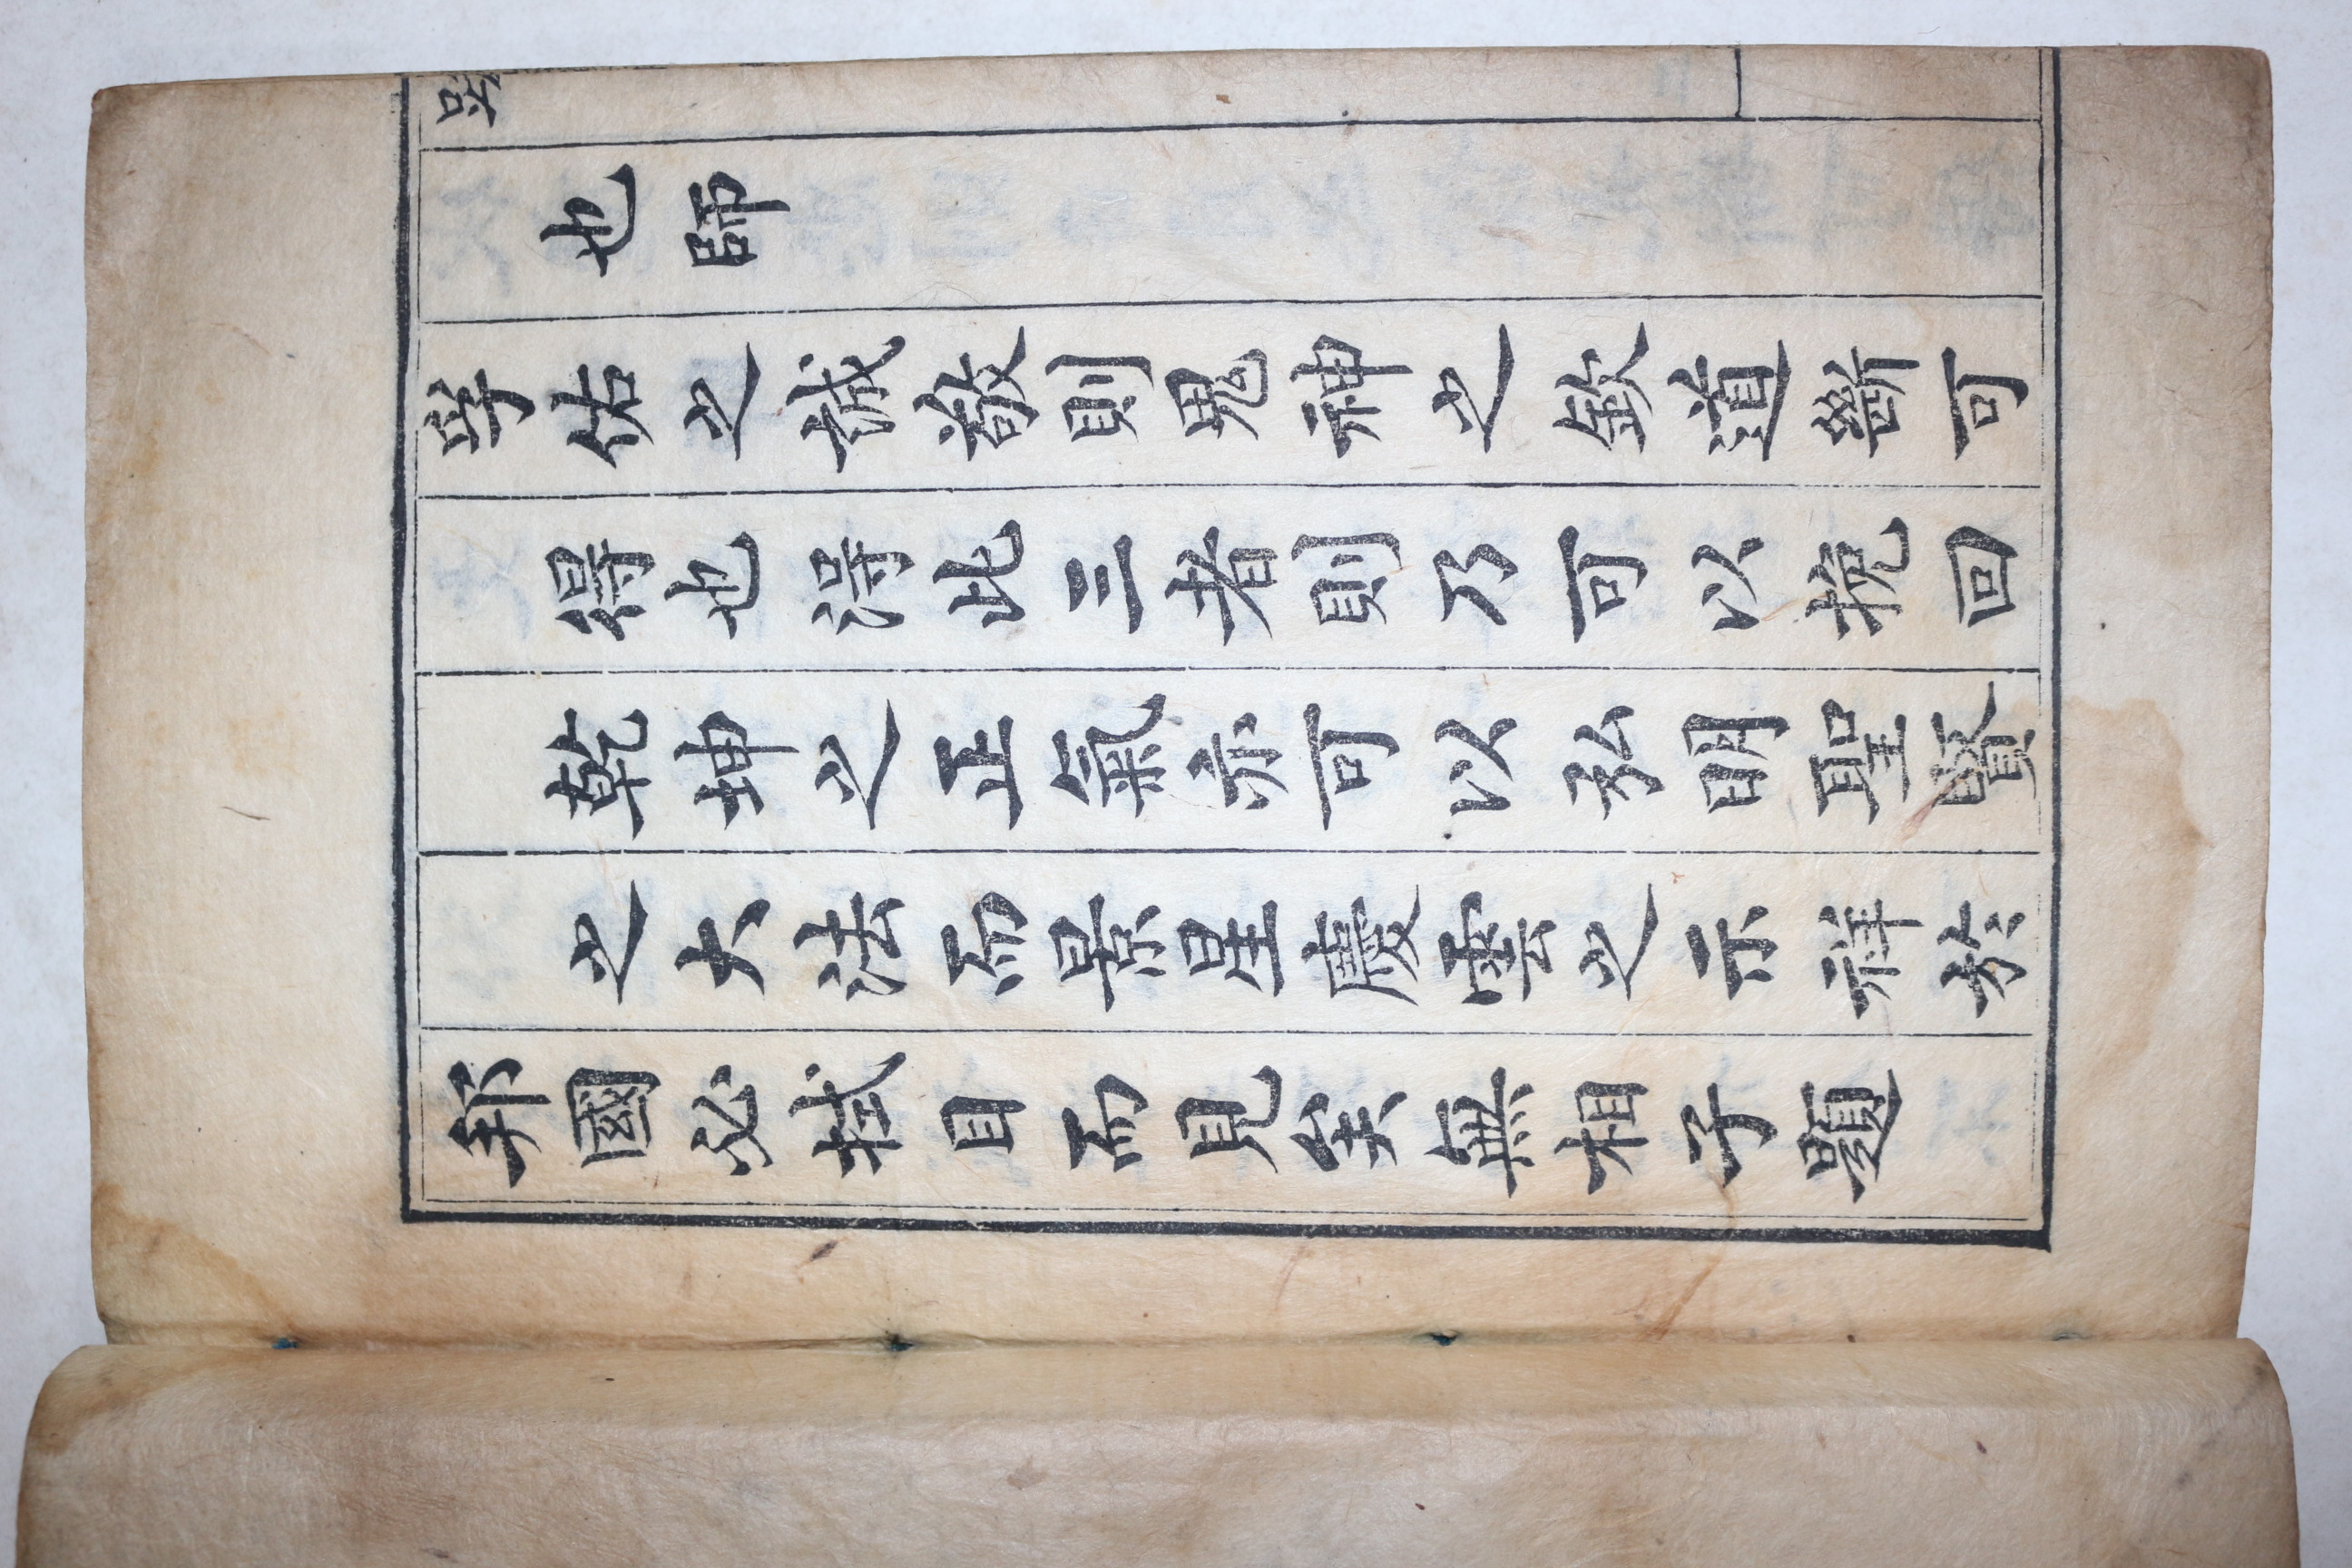 也師
孚佑之誠敬則鬼神之道斷可
得也得此三者則乃可以挽回
乾坤之正氣亦可以弘明聖賢
之大法而景星慶雲之示祥於
邦國必拭目而見矣無相子題